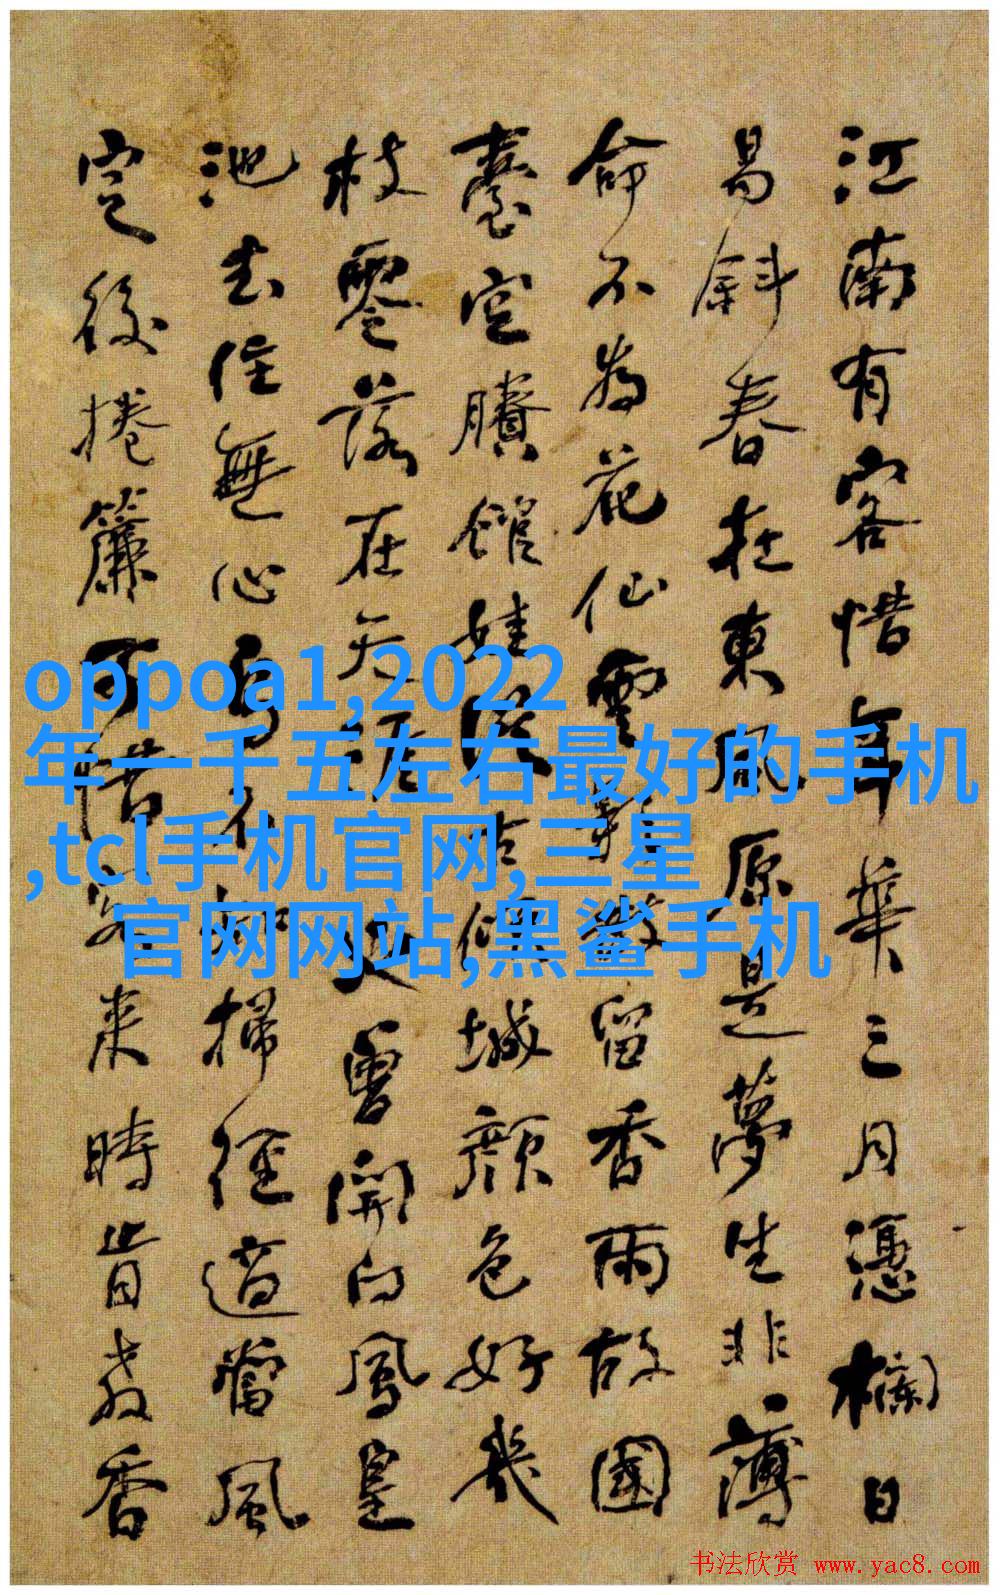 江南有客惜年華三月憑欄日
易斜春在東風原是夢生非薄
命不為花仙雲散留香雨故國
臺空賸館娃從古傾城顏色好幾
枝零落在天涯又曾開向鳳皇
池去住無心鳥不知掃徑適當風
定後捲簾可惜客來時肯教香
oppoa1,2022
年一千五左右最好的手机
,tcl手机官网,三星
官网网站,黑鲨手机
书法欣赏 www.yac8.com